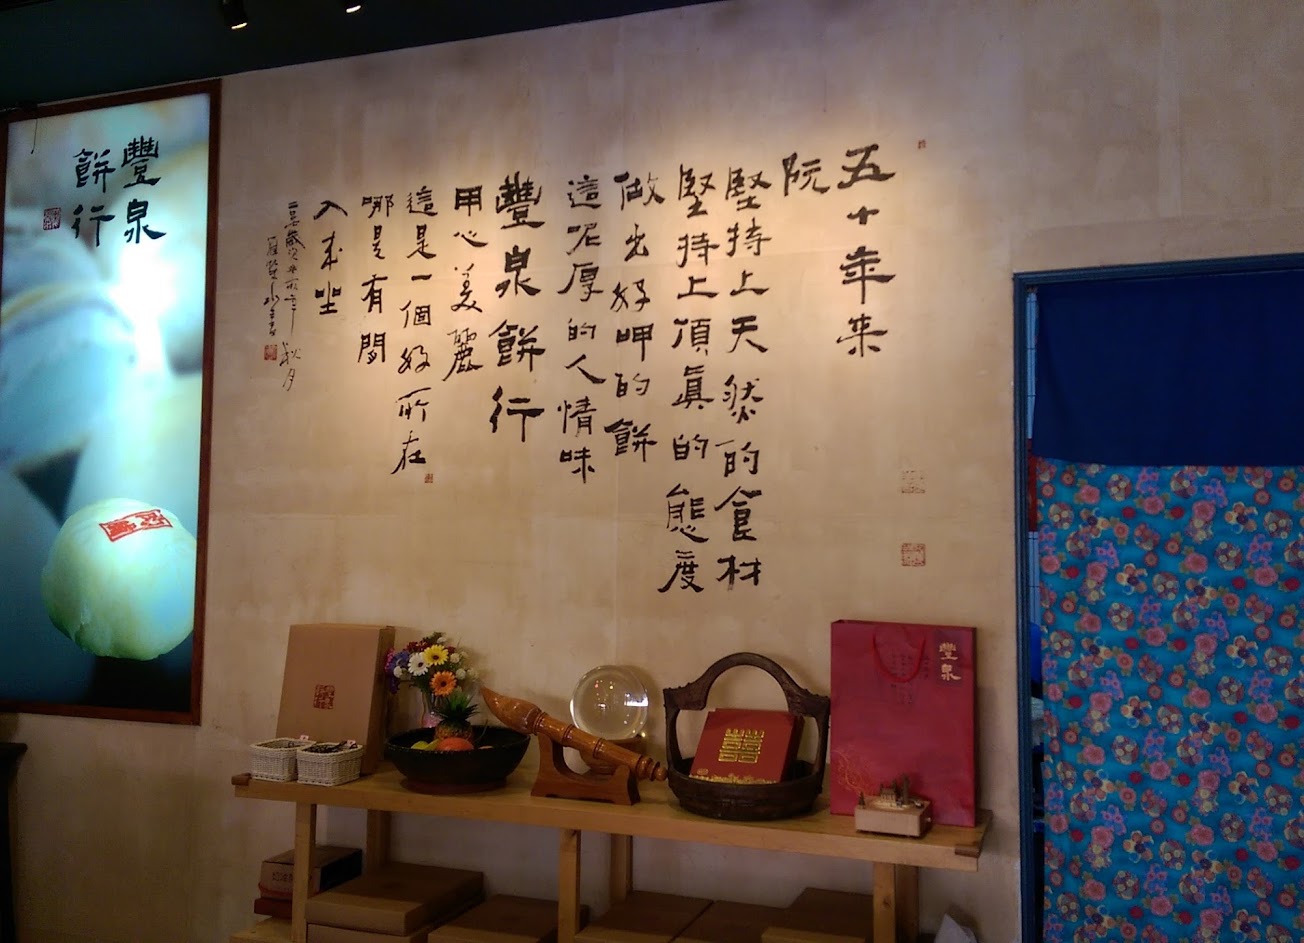 五十年来
阮
堅持上天然的食材
堅持上頂真的態度
做出好呷的餅
這呢厚的人情味
豐泉餅行
用心美麗
這是一個好所在
哪是有閒
入來坐
豐泉
餅行
豐泉
囍